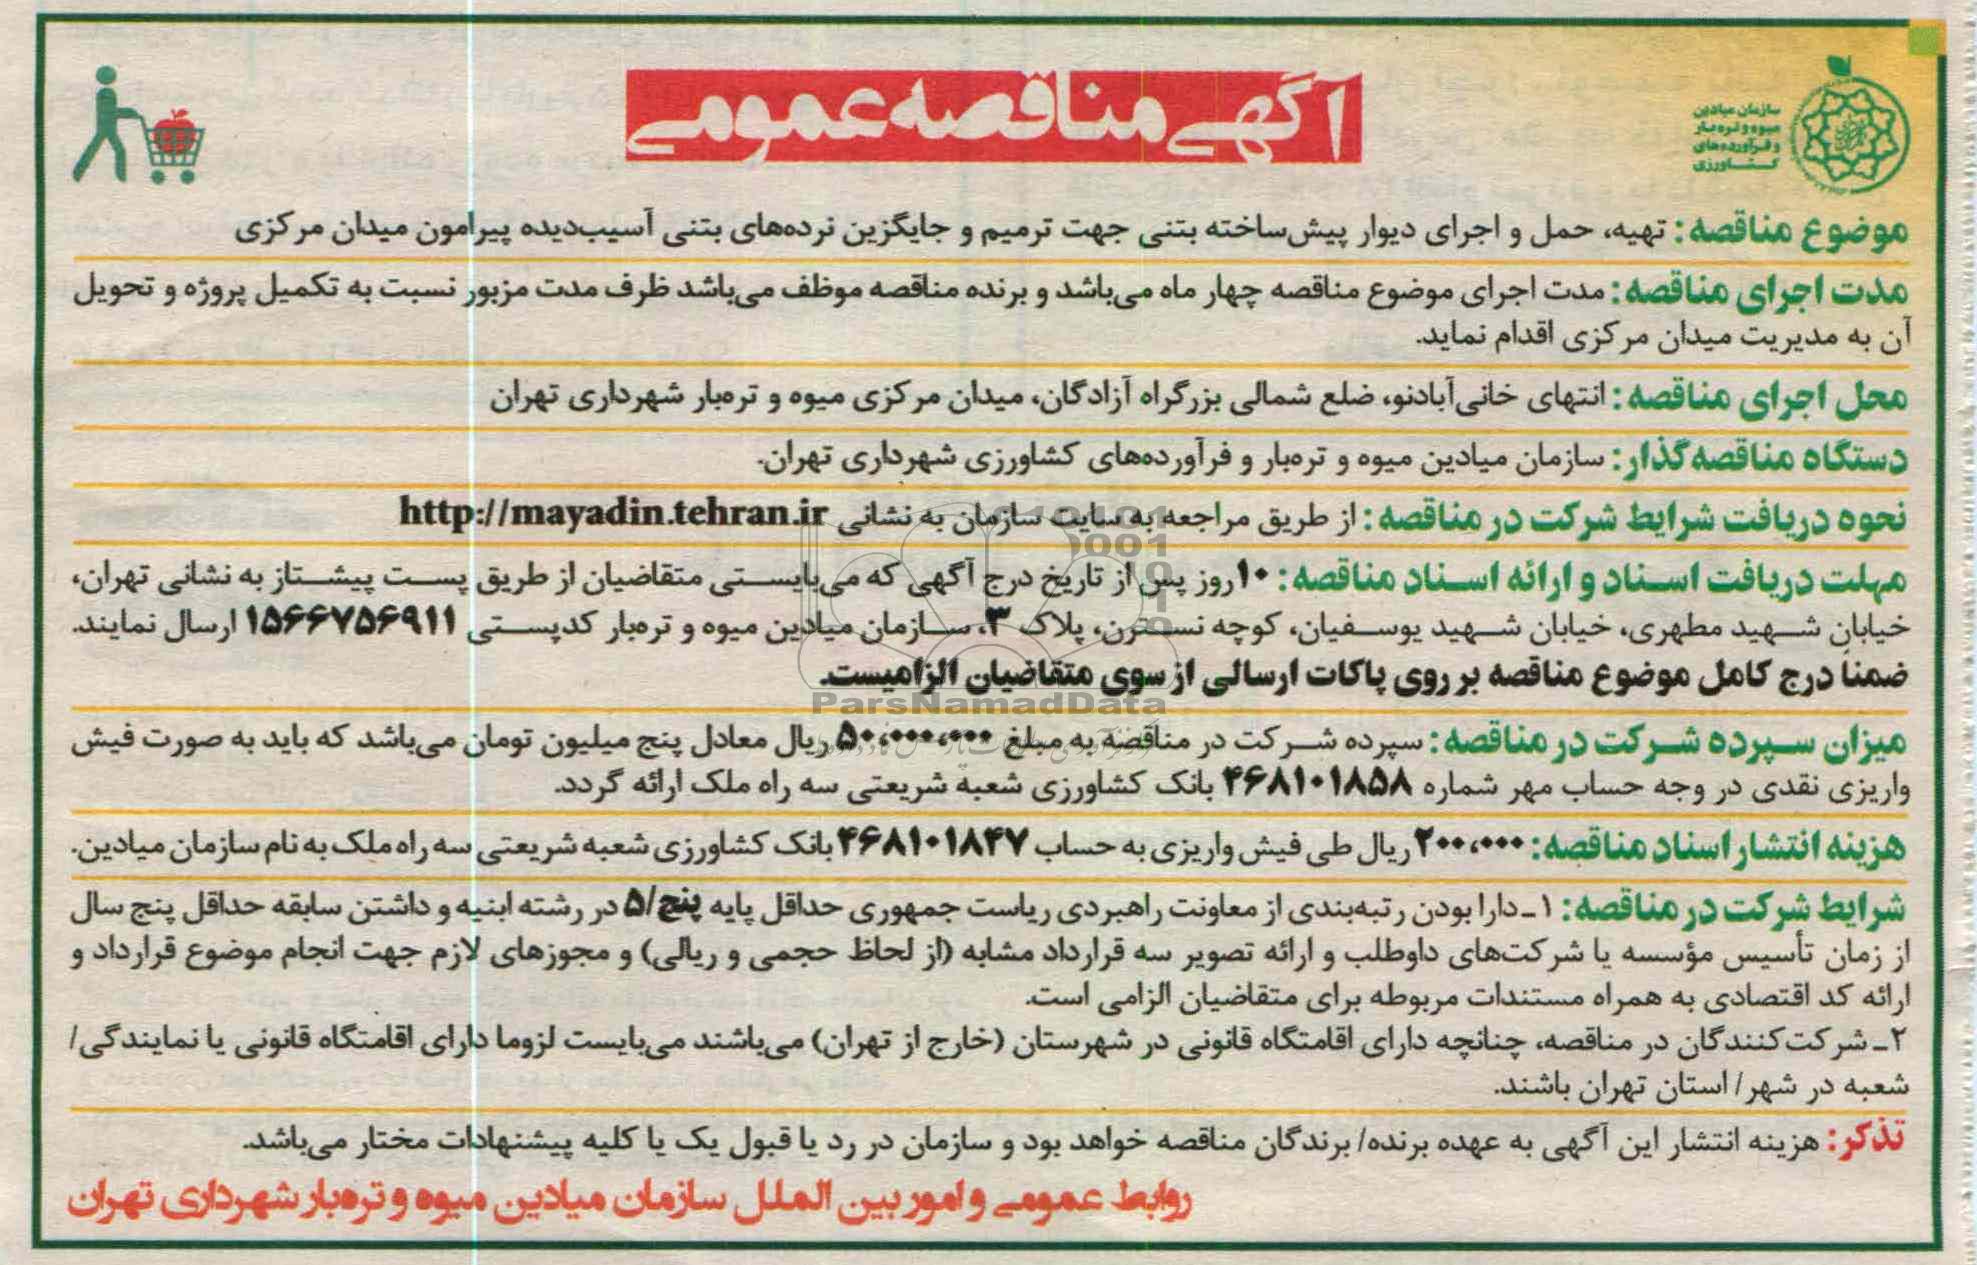 سازمان میادین
میوه و تره‌بار
و فرآورده‌های
کشاورزی
آگهی مناقصه عمومی
موضوع مناقصه: تهیه، حمل و اجرای دیوار پیش‌ساخته بتنی جهت ترمیم و جایگزین نرده‌های بتنی آسیب‌دیده پیرامون میدان مرکزی
مدت اجرای مناقصه: مدت اجرای موضوع مناقصه چهار ماه می‌باشد و برنده مناقصه موظف می‌باشد ظرف مدت مزبور نسبت به تکمیل پروژه و تحویل
آن به مدیریت میدان مرکزی اقدام نماید.
محل اجرای مناقصه: انتهای خانی‌آبادنو، ضلع شمالی بزرگراه آزادگان، میدان مرکزی میوه و تره‌بار شهرداری تهران
دستگاه مناقصه‌گذار: سازمان میادین میوه و تره‌بار و فرآورده‌های کشاورزی شهرداری تهران.
نحوه دریافت شرایط شرکت در مناقصه: از طریق مراجعه به سایت سازمان به نشانی http://mayadin.tehran.ir
مهلت دریافت اسناد و ارائه اسناد مناقصه: ۱۰روز پس از تاریخ درج آگهی که می‌بایستی متقاضیان از طریق پست پیشتاز به نشانی تهران،
خیابان شهید مطهری، خیابان شهید یوسفیان، کوچه نسترن، پلاک ۳، سازمان میادین میوه و تره‌بار کدپستی ۱۵۶۶۷۵۶۹۱۱ ارسال نمایند.
ضمناً درج کامل موضوع مناقصه بر روی پاکات ارسالی از سوی متقاضیان الزامیست.
ParsNamadData
میزان سپرده شرکت در مناقصه: سپرده شرکت در مناقصه به مبلغ ۵۰،۰۰۰،۰۰۰ ریال معادل پنج میلیون تومان می‌باشد که باید به صورت فیش
واریزی نقدی در وجه حساب مهر شماره ۴۶۸۱۰۱۸۵۸ بانک کشاورزی شعبه شریعتی سه راه ملک ارائه گردد.
هزینه انتشار اسناد مناقصه: ۲۰۰،۰۰۰ ریال طی فیش واریزی به حساب ۴۶۸۱۰۱۸۴۷ بانک کشاورزی شعبه شریعتی سه راه ملک به نام سازمان میادین.
شرایط شرکت در مناقصه: ۱ـ دارا بودن رتبه‌بندی از معاونت راهبردی ریاست جمهوری حداقل پایه پنج/۵ در رشته ابنیه و داشتن سابقه حداقل پنج سال
از زمان تأسیس مؤسسه یا شرکت‌های داوطلب و ارائه تصویر سه قرارداد مشابه (از لحاظ حجمی و ریالی) و مجوزهای لازم جهت انجام موضوع قرارداد و
ارائه کد اقتصادی به همراه مستندات مربوطه برای متقاضیان الزامی است.
۲ـ شرکت‌کنندگان در مناقصه، چنانچه دارای اقامتگاه قانونی در شهرستان (خارج از تهران) می‌باشند می‌بایست لزوما دارای اقامتگاه قانونی یا نمایندگی/
شعبه در شهر/ استان تهران باشند.
تذکر: هزینه انتشار این آگهی به عهده برنده/ برندگان مناقصه خواهد بود و سازمان در رد یا قبول یک یا کلیه پیشنهادات مختار می‌باشد.
روابط عمومی و امور بین الملل سازمان میادین میوه و تره‌بار شهرداری تهران